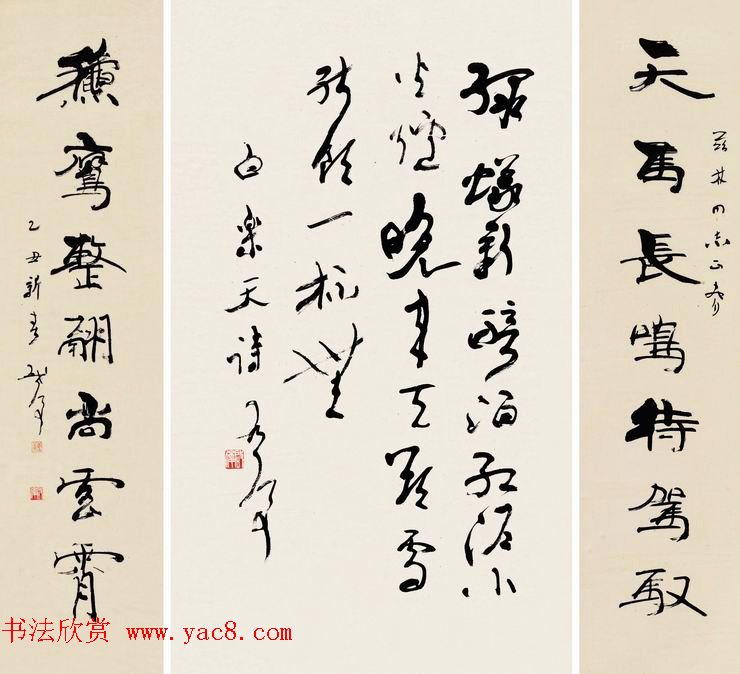 天馬長鳴待駕馭
林同志正
綠蟻新醅酒紅泥小
火爐晚来天欲雪
能飲一杯無
白樂天詩
鷹整翮尚雲霄
乙丑新春
书法欣赏 www.yac8.com